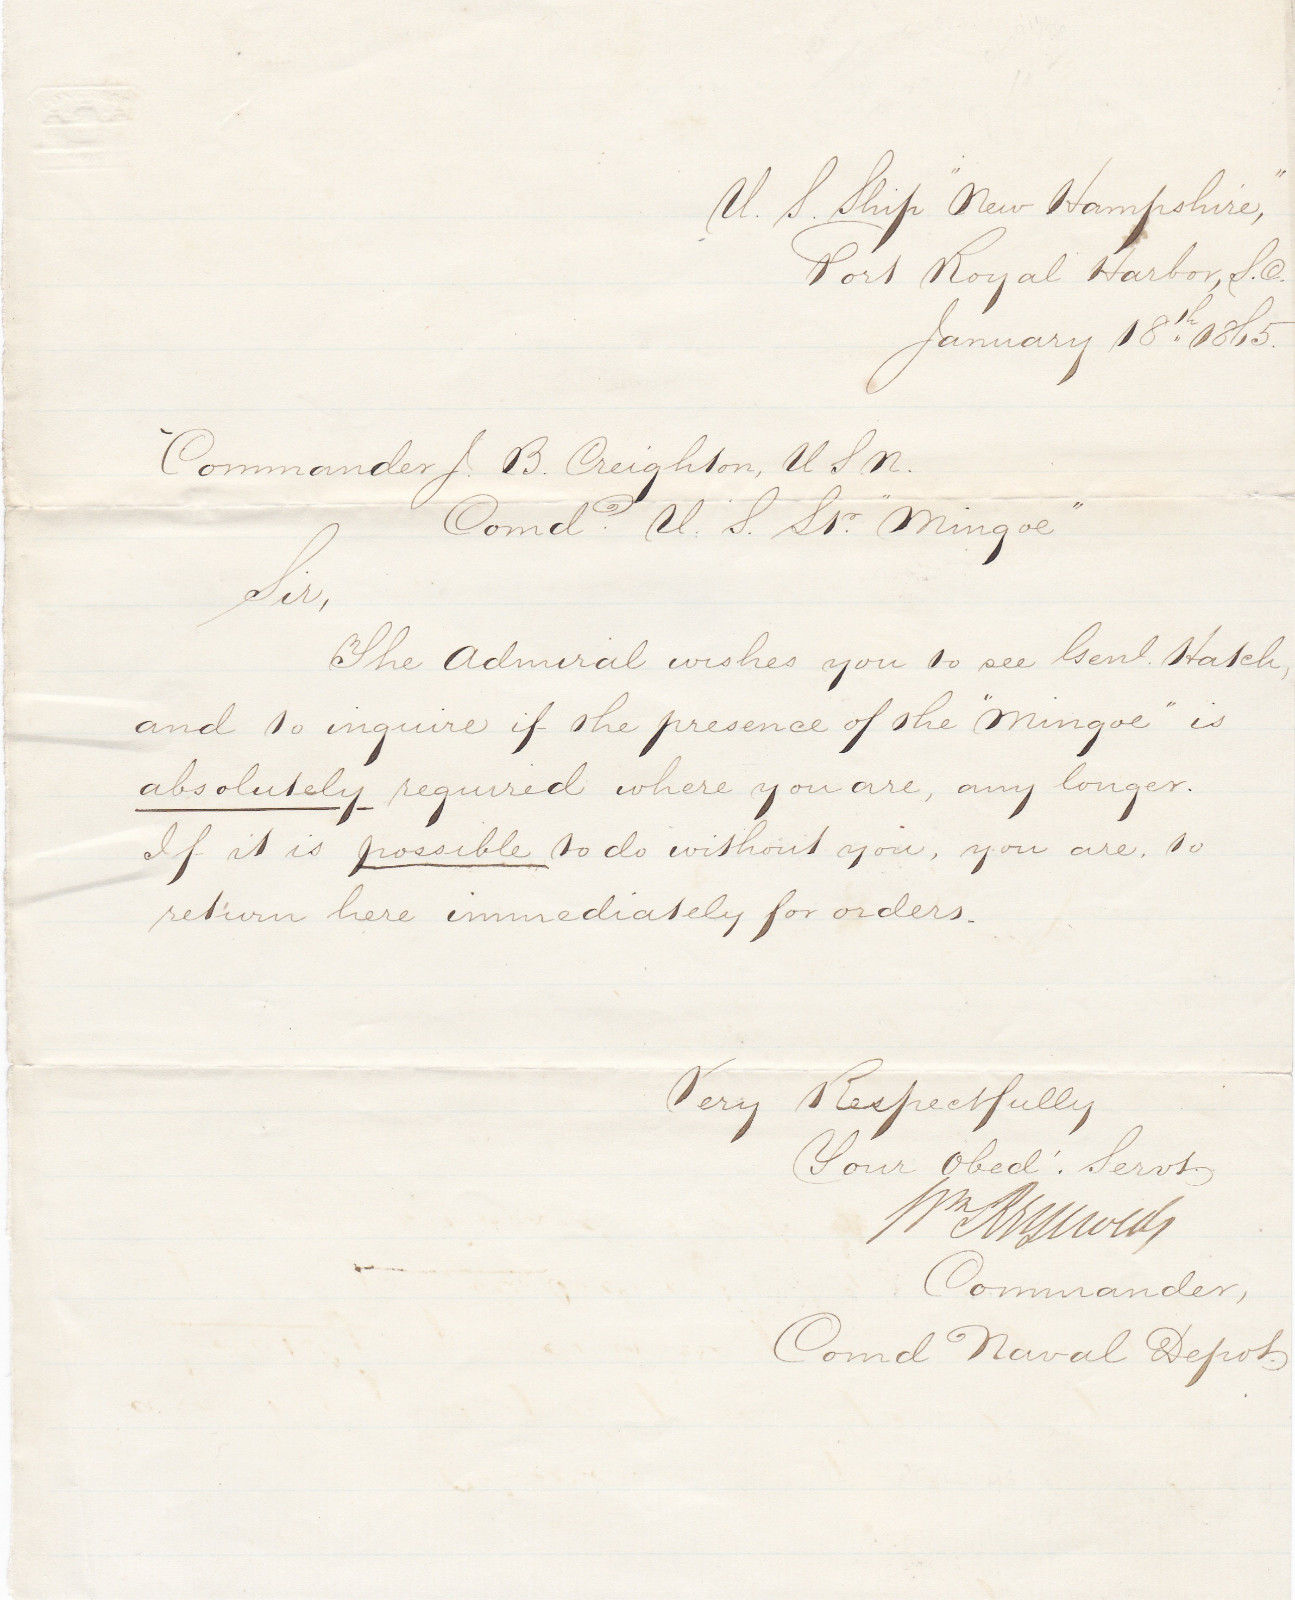 U. S. Ship "New Hampshire,"
Port Royal Harbor, S.C.
January 18th 1865.
Commander J. B. Creighton, U S N.
Comdg. U. S. Str. "Mingoe"
Sir,
The Admiral wishes you to see Genl. Hatch,
and to inquire if the presence of the "Mingoe" is
absolutely required where you are, any longer.
If it is possible to do without you, you are, to
return here immediately for orders.
Very Respectfully
Your Obedt. Servt.
Wm Reynolds
Commander,
Comd Naval Depot.